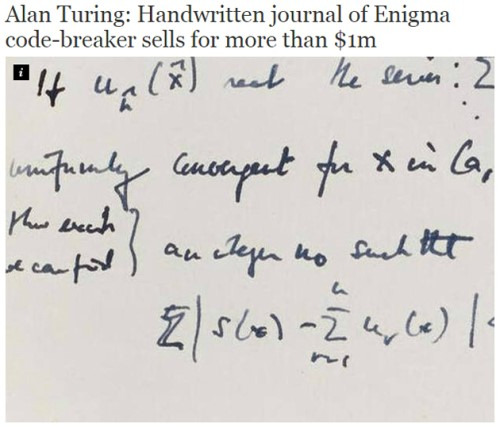 Alan Turing: Handwritten journal of Enigma
code-breaker sells for more than $1m
i
If uₙ(x) real the series : Σ
uniformly convergent for x in (a,
exists
we can find } an integer n₀ such that
| S(x) - Σ uᵣ(x) | <
n
r=1